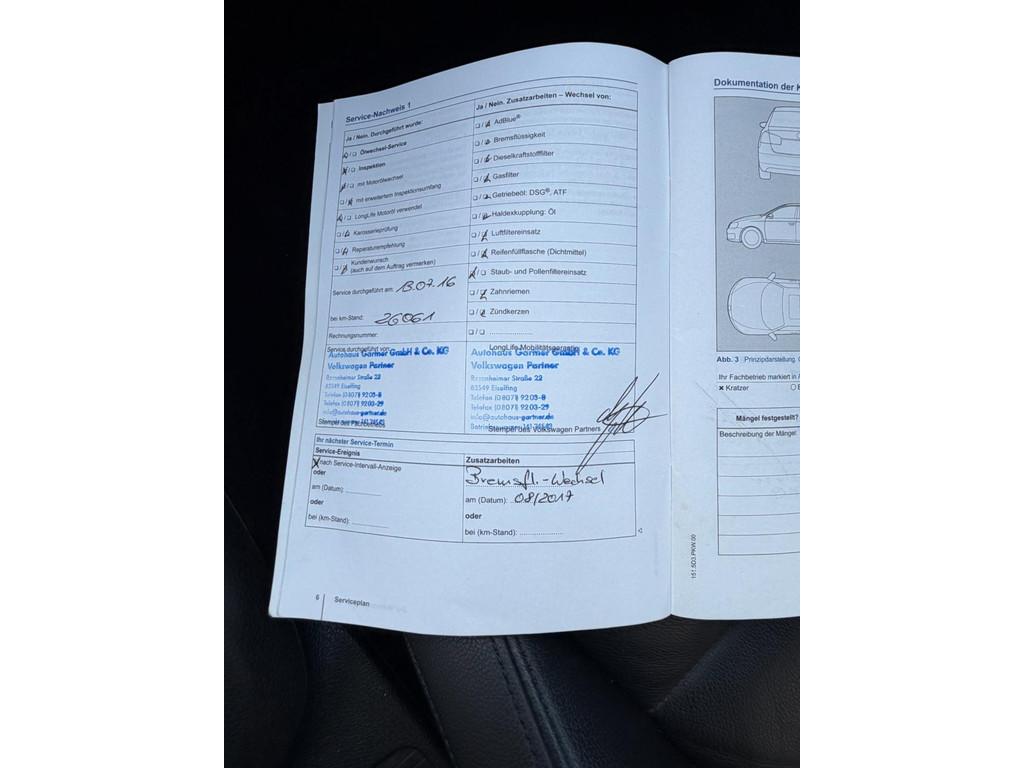 Service-Nachweis 1
Ja / Nein. Durchgeführt wurde:
Ölwechsel-Service
Inspektion
mit Motorölwechsel
mit erweitertem Inspektionsumfang
LongLife Motoröl verwendet
Karosserieprüfung
Reparaturempfehlung
Kundenwunsch
(auch auf dem Auftrag vermerken)
Service durchgeführt am: 13.07.16
bei km-Stand: 26061
Rechnungsnummer:
Service durchgeführt von:
Autohaus Garmer GmbH & Co. KG
Volkswagen Partner
Rosenheimer Straße 22
83549 Eiselfing
Telefon (0 80 71) 92 03-8
Telefax (0 80 71) 92 03-29
info@autohaus-partner.de
Stempel des Fachbetriebs
Ja / Nein. Zusatzarbeiten – Wechsel von:
AdBlue®
Bremsflüssigkeit
Dieselkraftstofffilter
Gasfilter
Getriebeöl: DSG®, ATF
Haldexkupplung: Öl
Luftfiltereinsatz
Reifenfüllflasche (Dichtmittel)
Staub- und Pollenfiltereinsatz
Zahnriemen
Zündkerzen
LongLife Mobilitätsgarantie
Autohaus Garmer GmbH & Co. KG
Volkswagen Partner
Rosenheimer Straße 22
83549 Eiselfing
Telefon (0 80 71) 92 03-8
Telefax (0 80 71) 92 03-29
info@autohaus-partner.de
Stempel des Volkswagen Partners
Ihr nächster Service-Termin
Service-Ereignis
nach Service-Intervall-Anzeige
oder
am (Datum):
oder
bei (km-Stand):
Zusatzarbeiten
Bremsfl.-Wechsel
am (Datum): 08/2017
oder
bei (km-Stand):
6 Serviceplan
Dokumentation der K
Abb. 3 Prinzipdarstellung.
Ihr Fachbetrieb markiert in
Kratzer
Mängel festgestellt?
Beschreibung der Mängel:
151.5D3.PKW.00